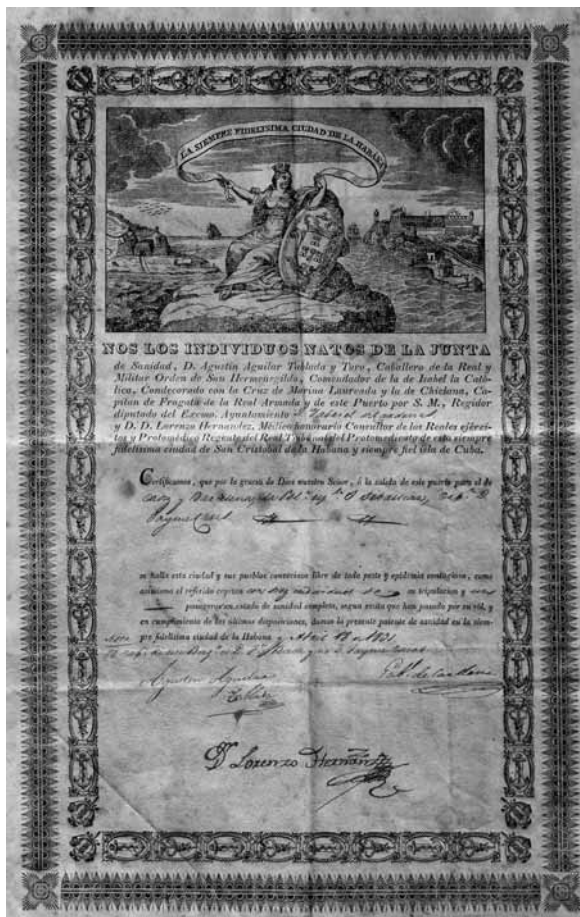 LA SIEMPRE FIDELISIMA CIUDAD DE LA HABANA
NOS LOS INDIVIDUOS NATOS DE LA JUNTA
de Sanidad, D. Agustin Aguilar Tablada y Toro, Caballero de la Real y
Militar Orden de San Hermenegildo, Comendador de la de Isabel la Cató-
lica, Condecorado con la Cruz de Marina Laureada y la de Chiclana, Ca-
pitan de Fragata de la Real Armada y de este Puerto por S. M., Regidor
diputado del Excmo. Ayuntamiento
y D. D. Lorenzo Hernandez, Médico honorario Consultor de los Reales ejérci-
tos y Protomédico Regente del Real Tribunal del Protomedicato de esta siempre
fidelísima ciudad de San Cristobal de la Habana y siempre fiel isla de Cuba.
Certificamos, que por la gracia de Dios nuestro Señor, á la salida de este puerto para el de
se halla esta ciudad y sus pueblos comarcanos libre de toda peste y epidemia contagiosa, como
asimismo el referido capitan con individuos de su tripulacion y
pasageros en estado de sanidad completo, segun visita que han pasado por su rol, y
en cumplimiento de las últimas disposiciones, damos la presente patente de sanidad en la siem-
pre fidelísima ciudad de la Habana y Abril de 1831
Agustin Aguilar
Tablada
D. Lorenzo Hernandez